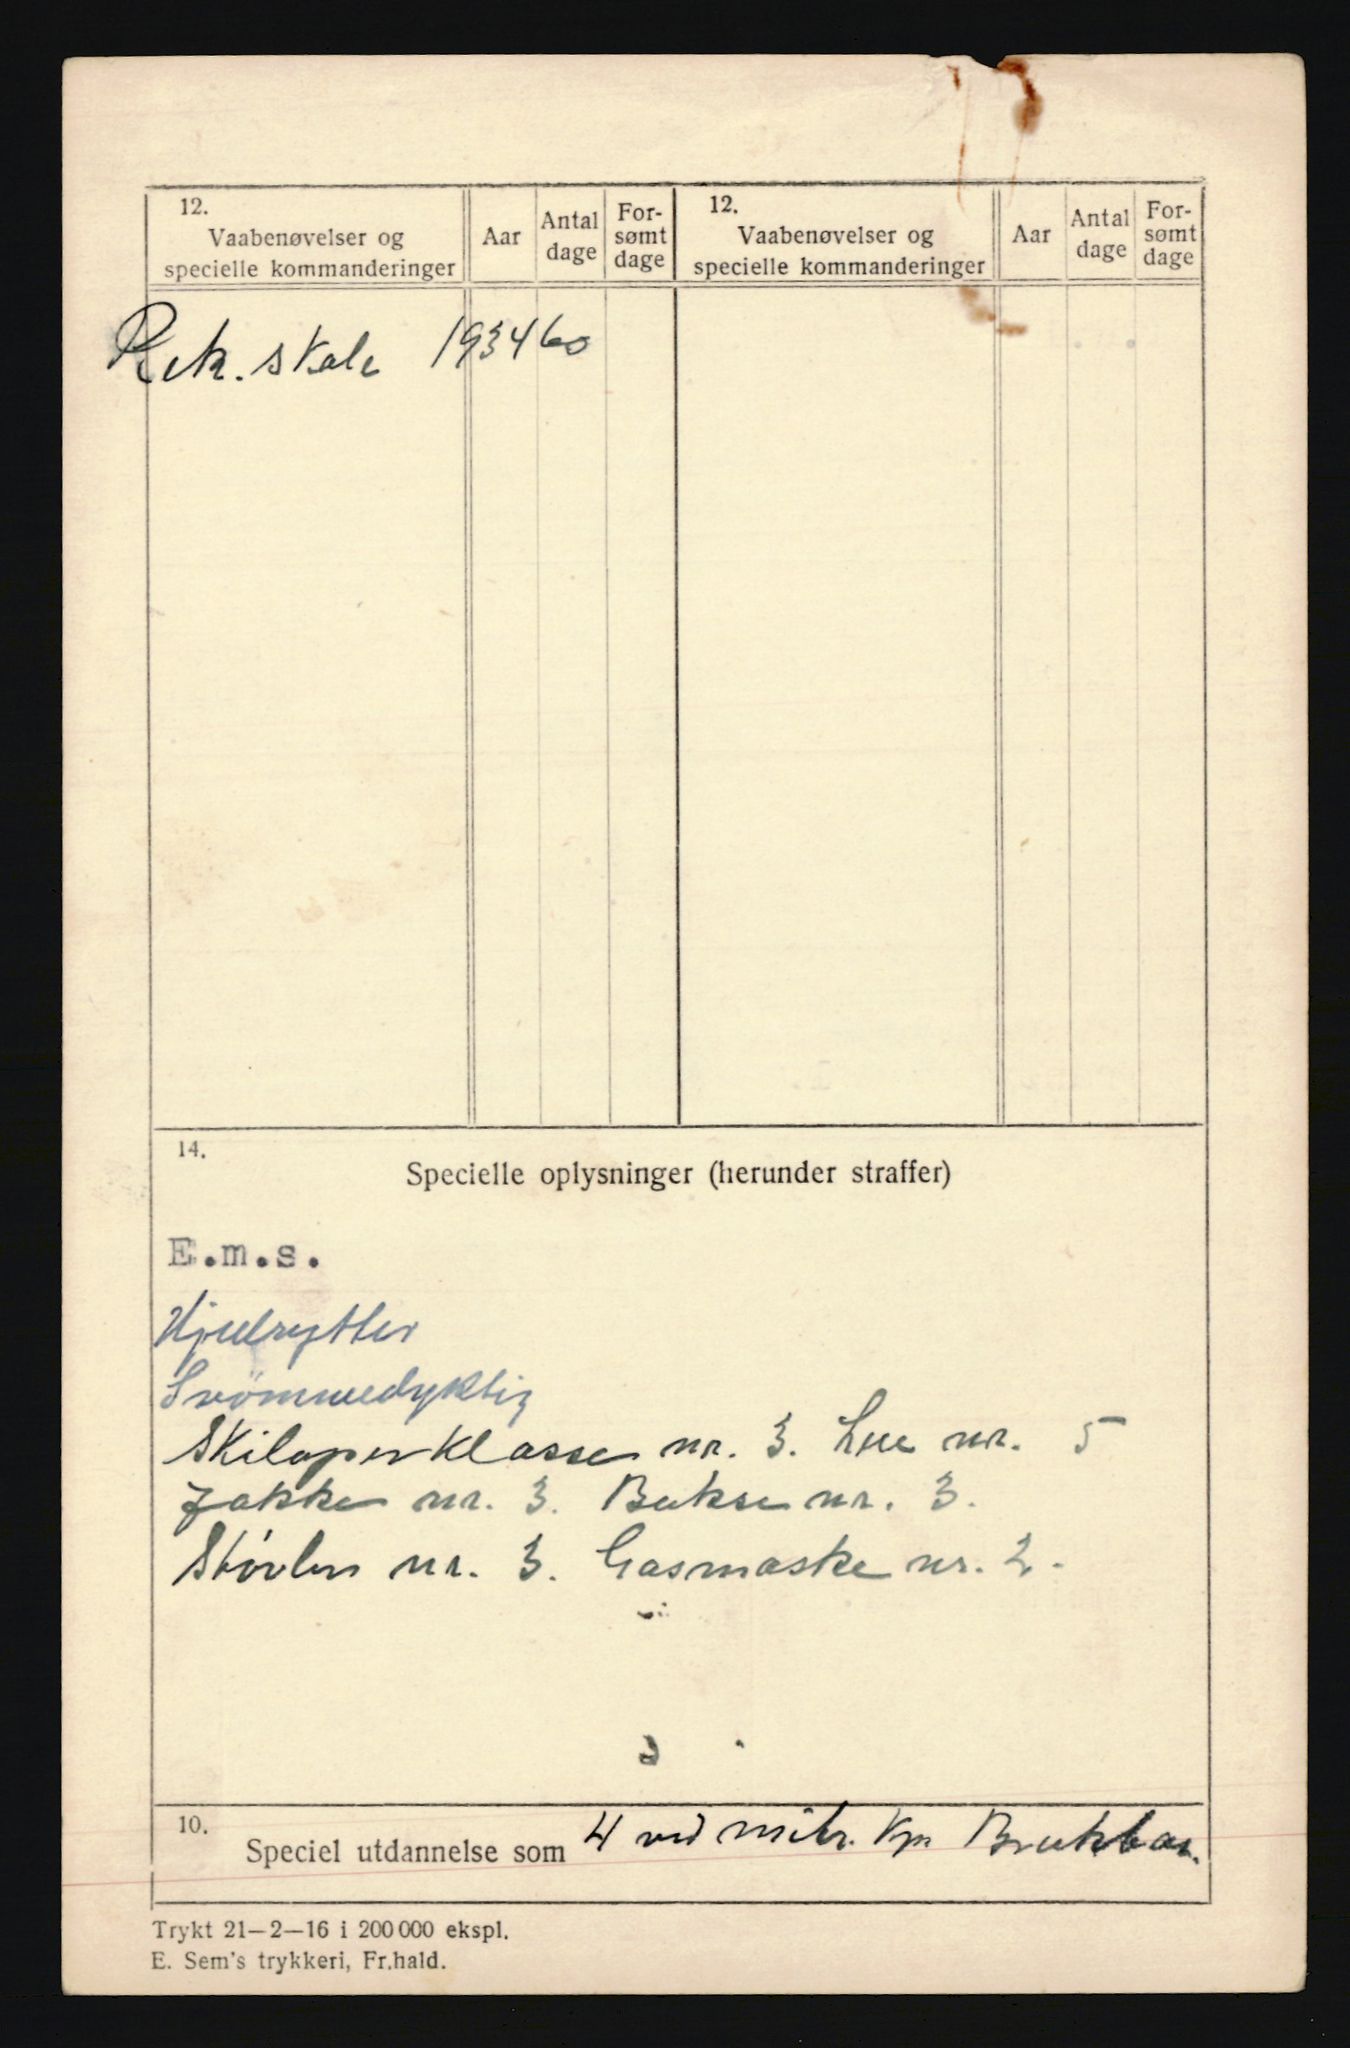 12.
Vaabenøvelser og
specielle kommanderinger
Aar
Antal
dage
For-
sømt
dage
12.
Vaabenøvelser og
specielle kommanderinger
Aar
Antal
dage
For-
sømt
dage
Rek. skole 1934 60
14.
Specielle oplysninger (herunder straffer)
E.m.s.
Hjulrytter
Svömmedyktig
Skiloperklasse nr. 3. Lue nr. 5
Jakke nr. 3. Bukse nr. 3.
Støvler nr. 3. Gasmaske nr. 2.
10.
Speciel utdannelse som 4 ved mitr. Kp. Brukbar.
Trykt 21—2—16 i 200 000 ekspl.
E. Sem's trykkeri, Fr.hald.